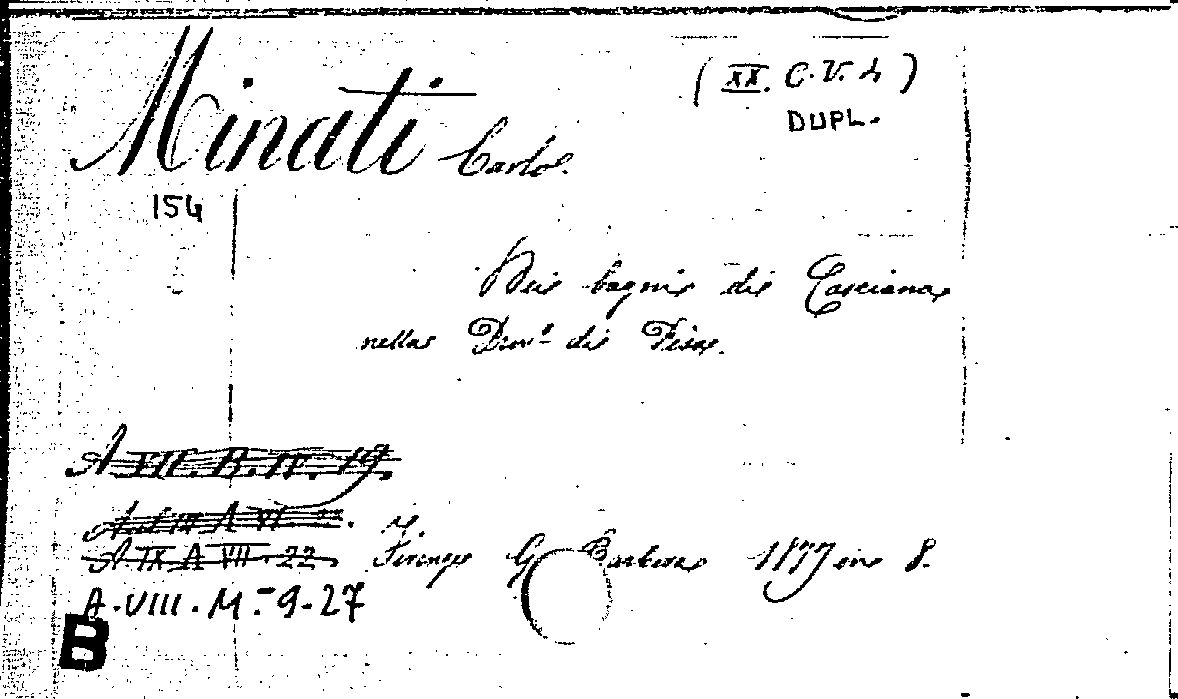 Minati Carlo.
(XX. C. V. 4)
DUPL.
154
Dei bagni di Casciana
nella Prov.ª di Pisa.
A VII. B. IV. 19.
A IX A VII 22
Firenze G. Barbera 1877 in 8.
A. VIII. M. - 9-27
B